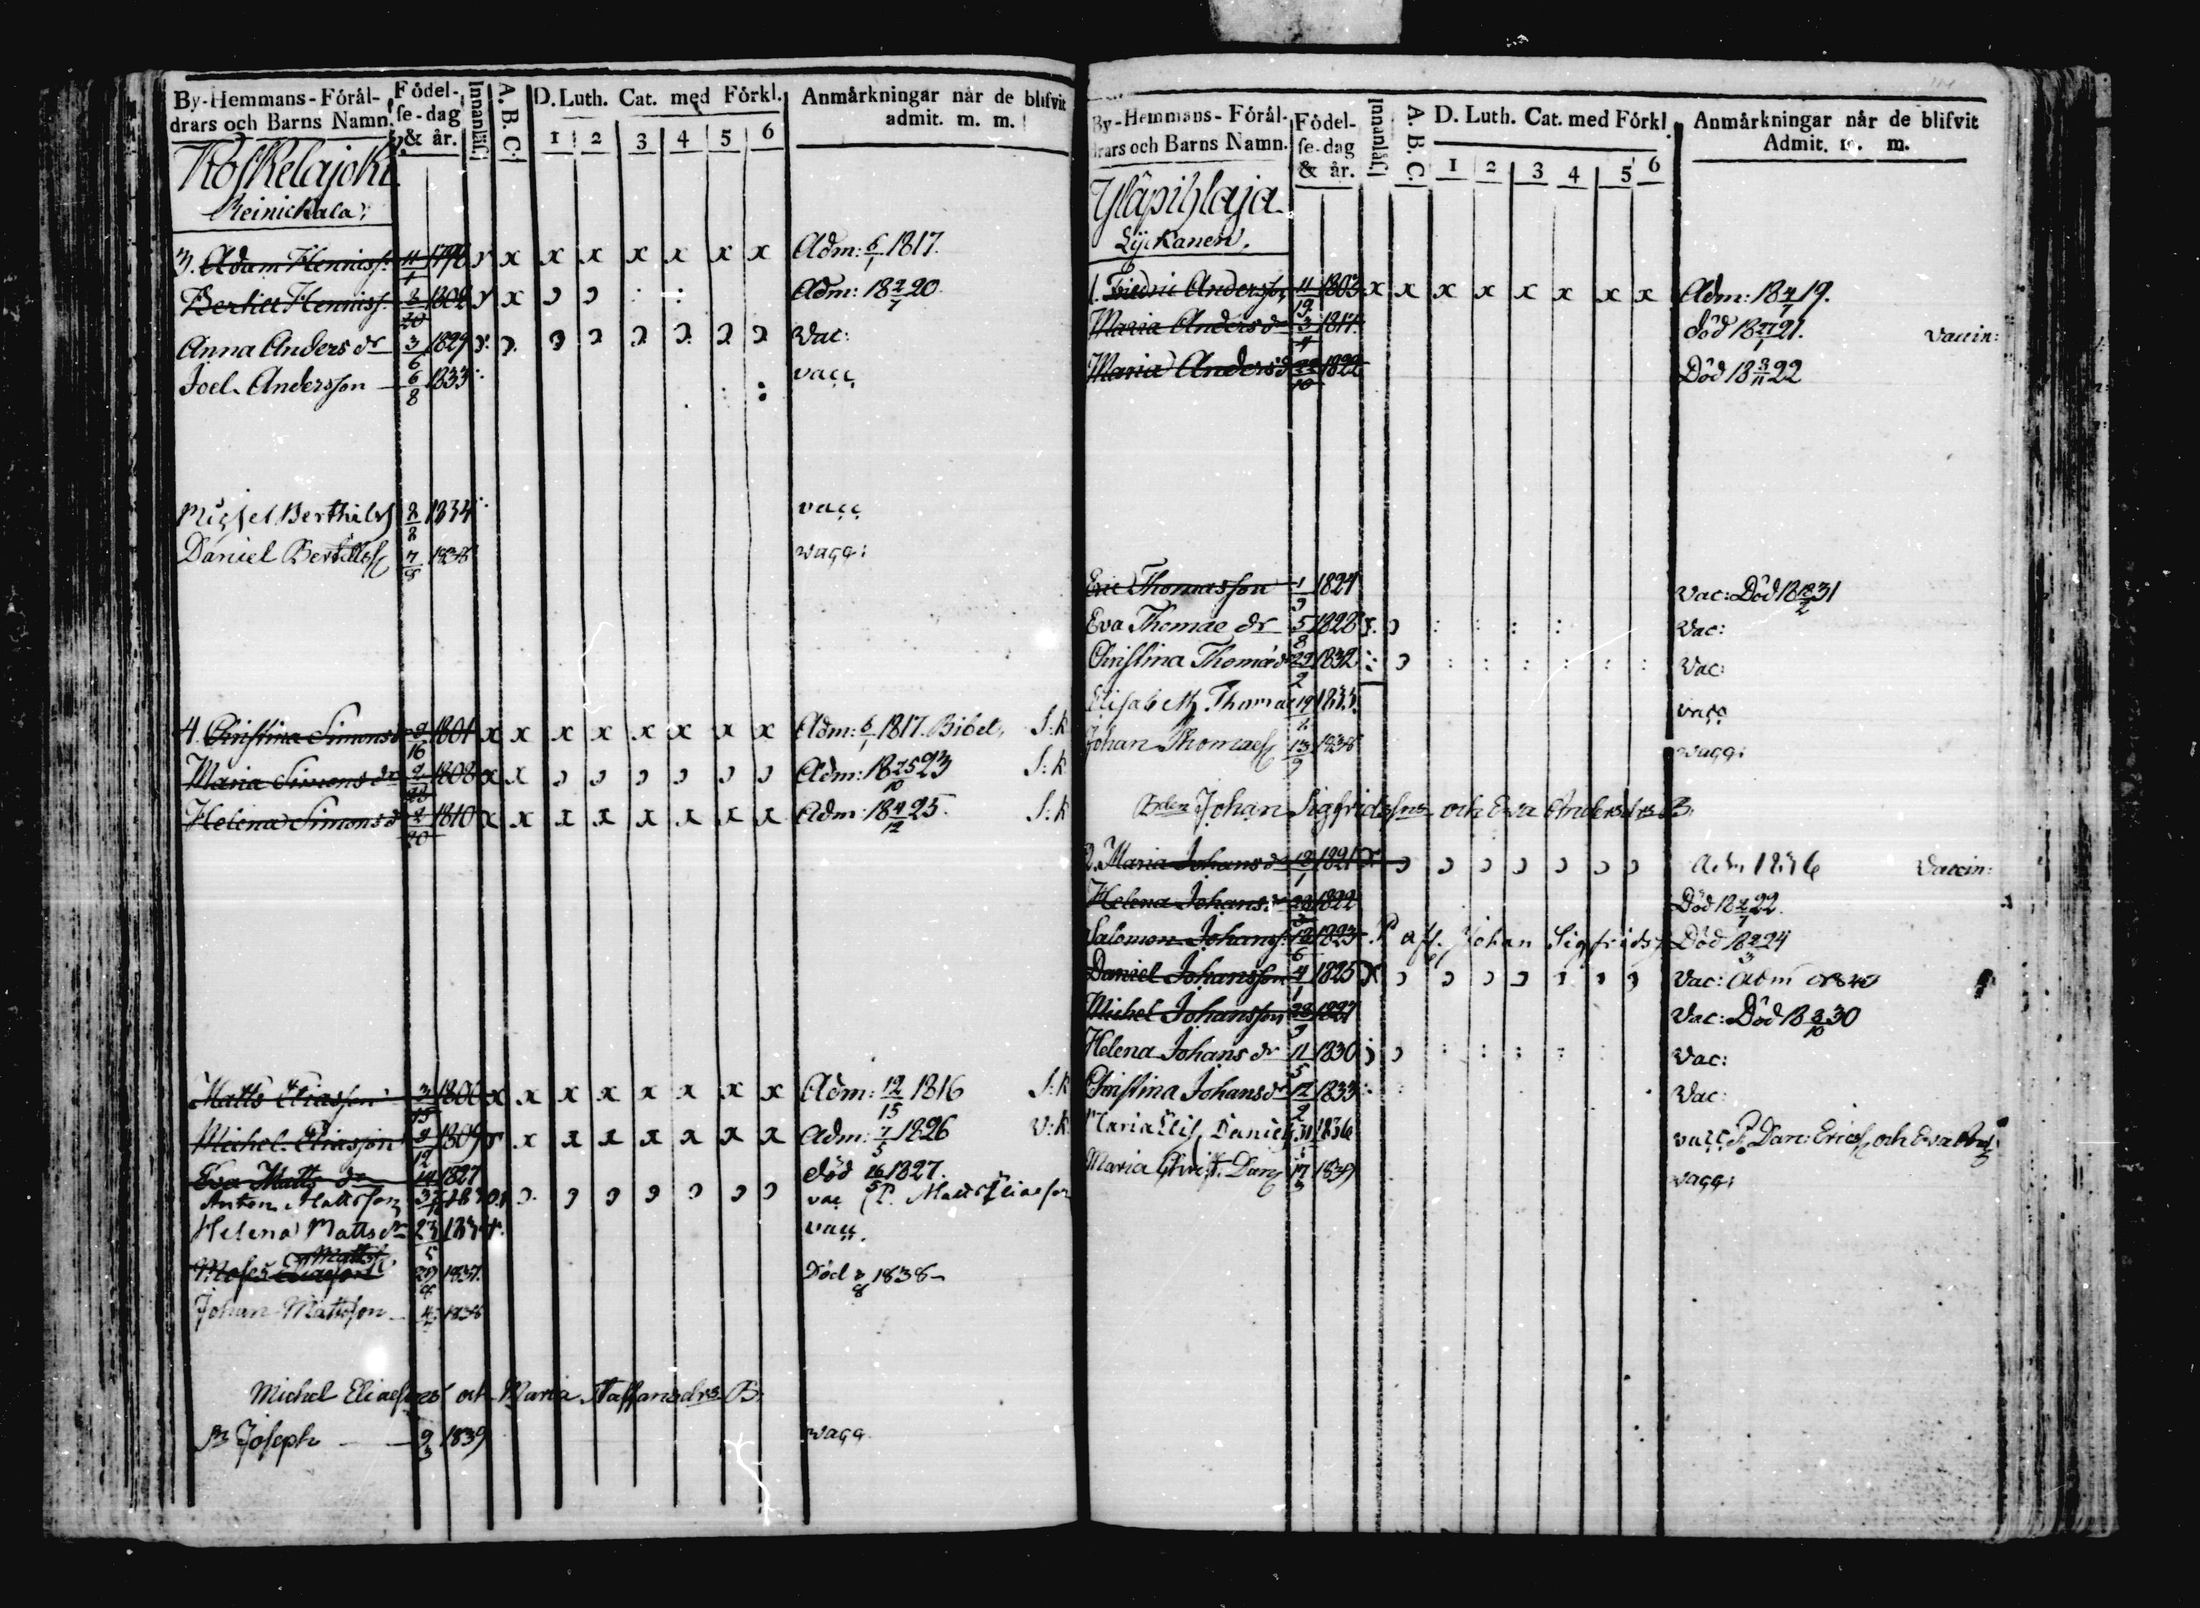 By-Hemmans-Fórål- Fódel- Innanläs. A.B.C. D. Luth. Cat. med Fórkl. Anmårkningar når de blifvit
drars och Barns Namn. se-dag & år. 1 2 3 4 5 6 admit. m. m.
Koskelajoki
Reinickala:
3. Adam Hennisss. 11/1 1798 x x x x x x x x Adm: 6/1 1817.
Bertil Hennisss. 3/20 1802 x x Adm: 18 2/7 20.
Anna Anders dr 3/6 1829 Vac:
Joel Andersson 6/8 1833 vacc
Michel Berthilss 2/2 1834 vacc
Daniel Bertilss 7/8 1838 vacc:
4. Christina Simons dr 9/16 1801 x x x x x x x x Adm: 6/1 1817. Bibel. S:k
Maria Simons dr 2/28 1808 x x Adm: 18 25/10 23 S:k
Helena Simons dr 2/20 1810 x x x x x x x x Adm: 18 4/12 25. S:k
Matts Eliasson 3/15 1800 x x x x x x x x Adm: 12/15 1816 S:k
Michel Eliasson 9/12 1809 x x x x x x x x Adm: 7/5 1826 V:k
Eva Matts dr 14 1827 död 16/5 1827.
Anton Mattsson vac P. Matts Eliasson
Helena Matts dr 23/5 183 vacc.
Moses Mattss 29/8 1837. Död 3/8 1838
Johan Mattsson 4 1838
Michel Eliassons och Maria Staffansdrs B:
Joseph 9/3 1839 vacc
By-Hemmans-Fórål- Fódel- Innanläs. A.B.C. D. Luth. Cat. med Fórkl. Anmårkningar når de blifvit
drars och Barns Namn. se-dag & år. 1 2 3 4 5 6 Admit. m. m.
Ylåpihlaja
Lyickanen.
1. Friedric Andersson 11/19 1803 x x x x x x x x Adm: 18 4/7 19.
Maria Anders dr 3/4 1817 död 18 27/1 21. Vaccin:
Maria Anders d 22/10 1822 Död 18 3/11 22
Eric Thomasson 1/9 1824 Vac: Död 18 18/2 31
Eva Thomae dr 5/8 1828 Vac:
Christina Thomæ dr 22/2 1832 Vac:
Elisabeth Thomae 19 1835 vacc
Johan Thomaess 13/9 1838 vacc:
Johan Sigfridssons och Eva Andersdrs B:
2. Maria Johans dr 12/1 1821 Adm 1836 Vaccin:
Helena Johans dr 28/3 1822 Död 18 4/7 22.
Salomon Johanss. 12/6 1823 P aff. Johan Sigfridss Död 18 2/3 24
Daniel Johansson 4/1 1825 Vac: Adm 1840
Michel Johansson 28/9 1827 Vac: Död 18 3/10 30
Helena Johans dr 11/5 1830 Vac:
Christina Johans dr 12/2 1833 Vac:
Maria Elis. Daniels 31 1836 vacc P. Dan: Ericss och Eva And
Maria Christ. Dan 17/9 1839 vacc: